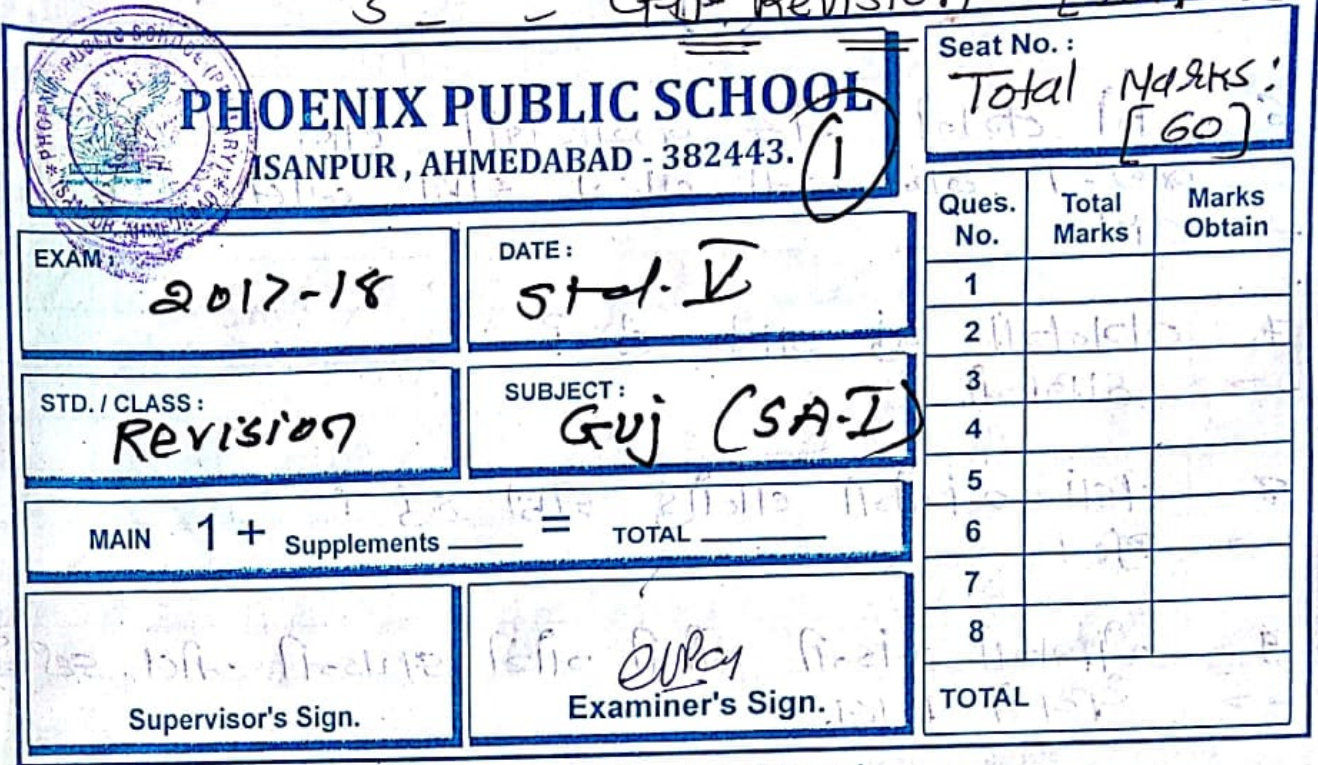 Revision
PHOENIX PUBLIC SCHOOL
ISANPUR, AHMEDABAD - 382443.
1
Seat No. :
Total Marks:
[60]
EXAM :
2017-18
DATE :
Std. V
STD. / CLASS :
Revision
SUBJECT :
Guj (SA-I)
MAIN 1 + Supplements ____ = TOTAL ____
Supervisor's Sign.
Examiner's Sign.
Ques. No. Total Marks Marks Obtain
1
2
3
4
5
6
7
8
TOTAL